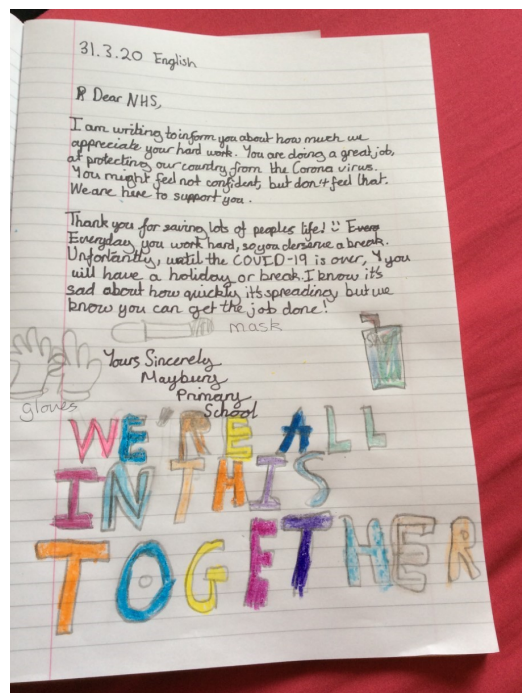 31.3.20 English
Dear NHS,
I am writing to inform you about how much we
appreciate your hard work. You are doing a great job,
at protecting our country from the Corona virus.
You might feel not confident, but don't feel that.
We are here to support you.
Thank you for saving lots of peoples life! Every
Everyday, you work hard, so you derserve a break.
Unfortantly, until the COVID-19 is over, you
will have a holiday or break. I know it's
sad about how quickly it's spreading but we
know you can get the job done!
mask
Yours Sincerely
Maybury
Primary
School
gloves
WE'RE ALL
IN THIS
TOGETHER